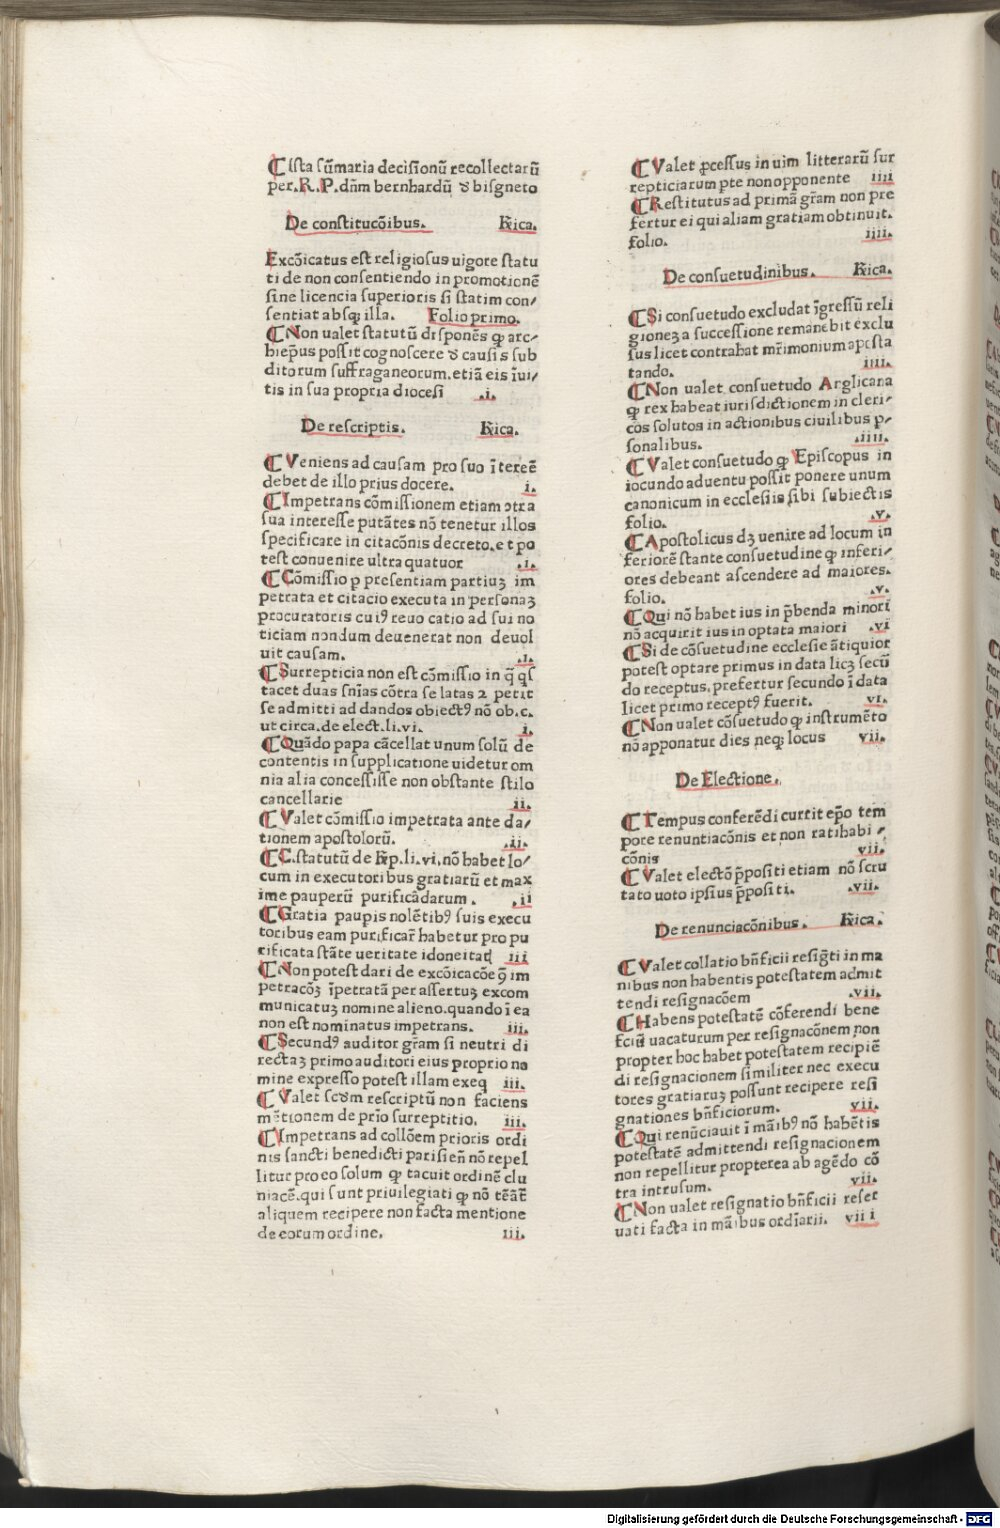 ¶ Ista sūmaria decisionū recollectarū
per.R.P.dn̄m bernhardū ꝺ bisgneto
De constitucōibus. Rīca.
Excōicatus est religiosus uigore statu
ti de non consentiendo in promotionē
sine licencia superioris si statim con⸗
sentiat absqꝫ illa. Folio primo.
¶ Non ualet statutū disponēs ꝙ arc⸗
hiep̄us possit cognoscere ꝺ causis sub
ditorum suffraganeorum.etiā eis īui⸗
tis in sua propria diocesi .i.
De rescriptis. Rīca.
¶ Veniens ad causam pro suo ītereē
debet de illo prius docere. i.
¶ Impetrans cōmissionem etiam ɔtra
sua interesse putātes nō tenetur illos
specificare in citacōnis decreto.et po
test conuenire ultra quatuor .i.
¶ Cōmissio ꝑ presentiam partiuꝫ im
petrata et citacio executa in personaꝫ
procuratoris cuiꝰ reuo catio ad sui no
ticiam nondum deuenerat non deuol
uit causam. .i.
¶ Surrepticia non est cōmissio in q̄ qs̄
tacet duas sn̄ias cōtra se latas ⁊ petit
se admitti ad dandos obiectꝰ nō ob.c.
ut circa.de elect.li.vi. i.
¶ Quādo papa cācellat unum solū de
contentis in supplicatione uidetur om
nia alia concessisse non obstante stilo
cancellarie ii.
¶ Valet cōmissio impetrata ante da⸗
tionem apostolorū. .ii.
¶ C.statutū de Rp.li.vi,nō habet lo⸗
cum in executoribus gratiarū et max
ime pauperū purificādarum . .ii
¶ Gratia paupis nolētibꝰ suis execu
toribus eam purificar̄ habetur pro pu
rificata stāte ueritate idoneitatꝭ iii
¶ Non potest dari de excōicacōe ꝗ im
petracōꝫ īpetratā per assertuꝫ excom
municatuꝫ nomine alieno.quando ī ea
non est nominatus impetrans. iii.
¶ Secundꝰ auditor gr̄am si neutri di
rectaꝫ primo auditori eius proprio no
mine expresso potest illam exeq iii.
¶ Valet scꝺm rescriptū non faciens
mētionem de pr̄io surreptitio. iii.
¶ Impetrans ad collōem prioris ordi
nis sancti benedicti parisieñ nō repel
litur pro eo solum ꝙ tacuit ordinē clu
niacē.qui sunt priuilegiati ꝙ nō tēāt̄
aliquem recipere non facta mentione
de eorum ordine. iii.
¶ Valet ꝓcessus in uim litterarū sur
repticiarum pte non opponente iiii
¶ Restitutus ad primā gr̄am non pre
fertur ei qui aliam gratiam obtinuit.
folio. iiii.
De consuetudinibus. Rīca.
¶ Si consuetudo excludat īgressū reli
gioneꝫ a successione remanebit exclu
sus licet contrahat mr̄imonium aposta
tando. iiii.
¶ Non ualet consuetudo Arglicana
ꝙ rex habeat iurisdictionem in cleri⸗
cos solutos in actionibus ciuilibus p⸗
sonalibus. .iiii.
¶ Valet consuetudo ꝙ Episcopus in
iocundo aduentu possit ponere unum
canonicum in ecclesiis sibi subiectis
folio. .v.
¶ Apostolicus dꝫ uenire ad locum in
feriorē stante consuetudine ꝙ inferi⸗
ores debeant ascendere ad maiores.
folio. .v.
¶ Qui nō habet ius in p̄benda minori
nō acquirit ius in optata maiori .vi
¶ Si de cōsuetudine ecclesie ātiquior
potest optare primus in data licꝫ secū
do receptus.prefertur secundo ī data
licet primo receptꝰ fuerit. vi.
¶ Non ualet cōsuetudo ꝙ instrumēto
nō apponatur dies neqꝫ locus vii.
De Electione.
¶ Tempus conferēdi currit ep̄o tem
pore renuntiacōnis et non ratihabi⸗
cōnis vii.
¶ Valet electō p̄positi etiam nō scru
tato uoto ipsius p̄positi. .vii.
De renunciacōnibus. Rīca.
¶ Valet collatio bn̄ficii resiḡti in ma
nibus non habentis potestatem admit
tendi resignacōem .vii.
¶ Habens potestatē cōferendi bene
fciū uacaturum per resignacōnem non
propter hoc habet potestatem recipiē
di resignacionem similiter nec execu
tores gratiaruꝫ possunt recipere resi
gnationes bn̄ficiorum. vii.
¶ Qui renūciauit ī māibꝰ nō habētis
potestatē admittendi resignacionem
non repellitur propterea ab agēdo cō
tra intrusum. vii.
¶ Non ualet resignatio bn̄ficii reser
uati facta in māibus ordīarii. vii i
Digitalisierung gefördert durch die Deutsche Forschungsgemeinschaft - DFG